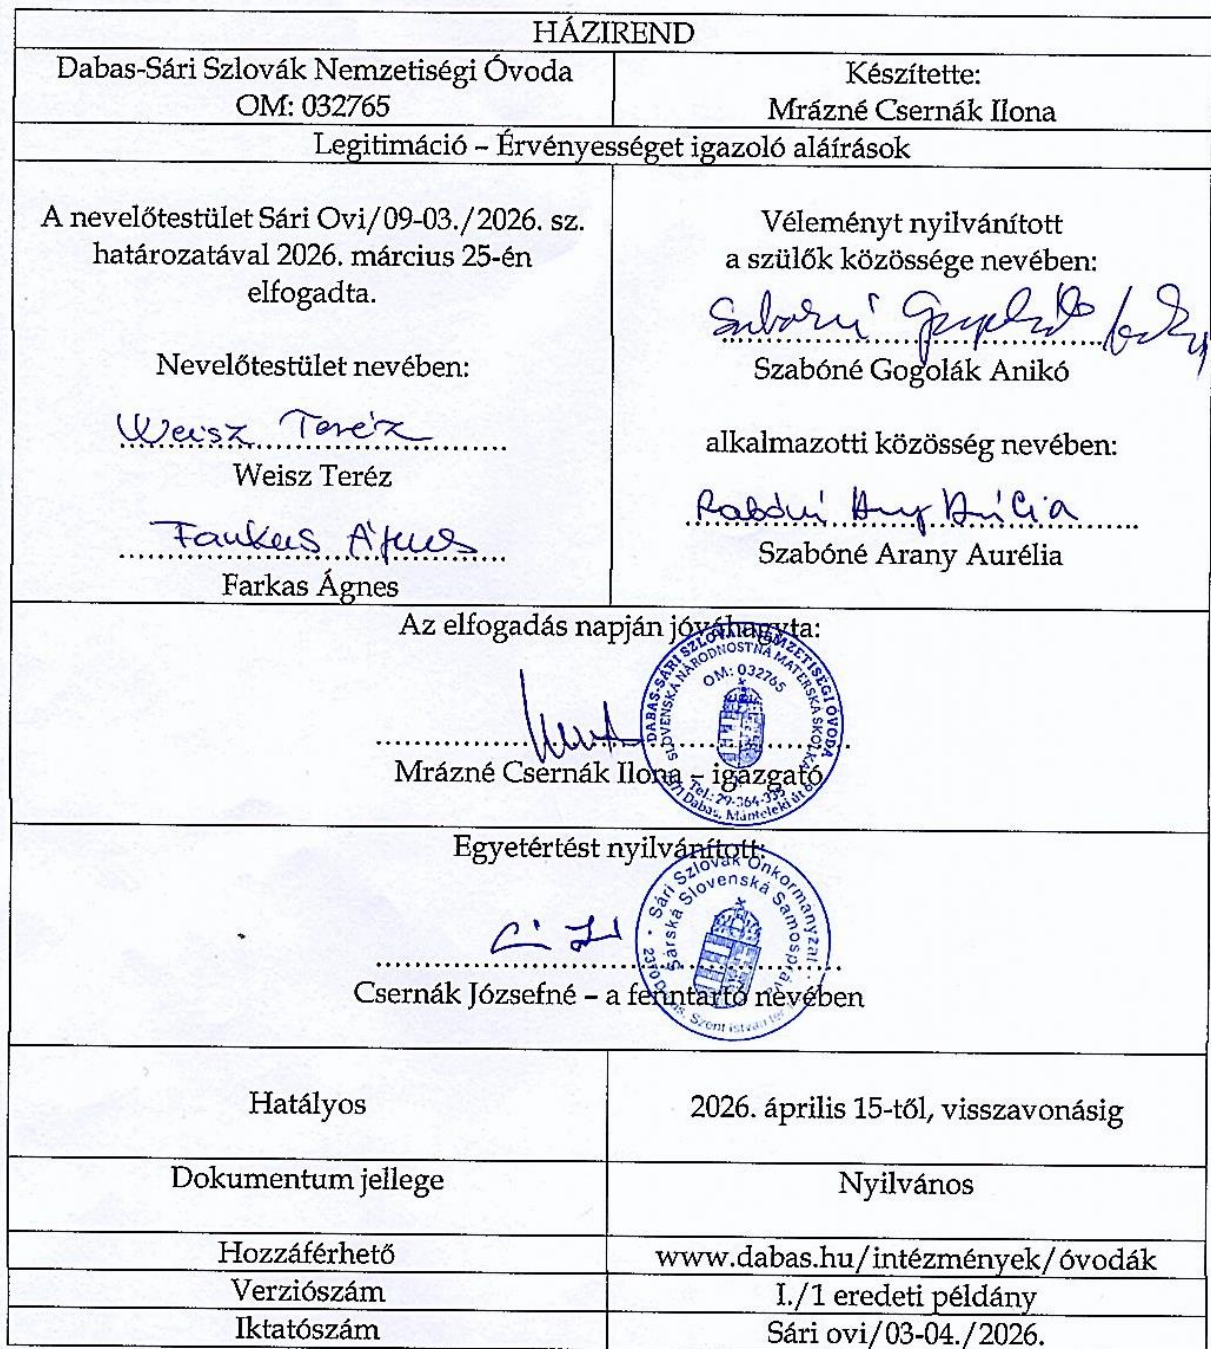 HÁZIREND
Dabas-Sári Szlovák Nemzetiségi Óvoda
OM: 032765
Készítette:
Mrázné Csernák Ilona
Legitimáció – Érvényességet igazoló aláírások
A nevelőtestület Sári Ovi/09-03./2026. sz.
határozatával 2026. március 25-én
elfogadta.
Nevelőtestület nevében:
Weisz Teréz
Weisz Teréz
Farkas Ágnes
Farkas Ágnes
Véleményt nyilvánított
a szülők közössége nevében:
Szabóné Gogolák Anikó
alkalmazotti közösség nevében:
Szabóné Arany Aurélia
Az elfogadás napján jóváhagyta:
DABAS-SÁRI SZLOVÁK NEMZETISÉGI ÓVODA
SLOVENSKÁ NÁRODNOSTNÁ MATERSKÁ ŠKÔLKA
OM: 032765
Tel.: 29-364-335
Dabas, Mánteleki út
Mrázné Csernák Ilona – igazgató
Egyetértést nyilvánított:
Sári Szlovák Önkormányzat
Sárska Slovenská Samospráva
2370 Dabas, Szent István
Csernák Józsefné – a fenntartó nevében
Hatályos
2026. április 15-től, visszavonásig
Dokumentum jellege
Nyilvános
Hozzáférhető
www.dabas.hu/intézmények/óvodák
Verziószám
I./1 eredeti példány
Iktatószám
Sári ovi/03-04./2026.